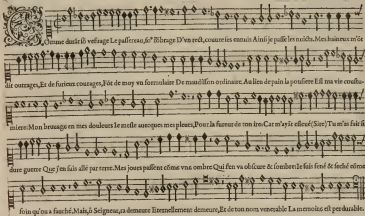 Comme dans son vefuage Le passereau, sos l'ombrage D'vn toict, couure ses ennuis Ainsi je passe les nuicts. Mes haineux m'ont
dit outrages, Et de furieux courages, Font de moy vn formulaire De maudisson ordinaire. Au lieu de pain la poussiere Est ma vie coustu-
miere: Mon bruuage en mes douleurs Ie mesle auecques mes pleurs, Pour la fureur de ton ire: Car m'ayāt esleué (Sire) Tu m'as fait si
dure guerre Que j'en suis allé par terre. Mes jours passent cōme vne ombre Qui s'en va obscure & sombre: Ie suis sené & seché cōme
foin qu'on a fauché, Mais, ô Seigneur, ta demeure Eternellement demeure, Et de ton nom venerable La memoire est perdurable.